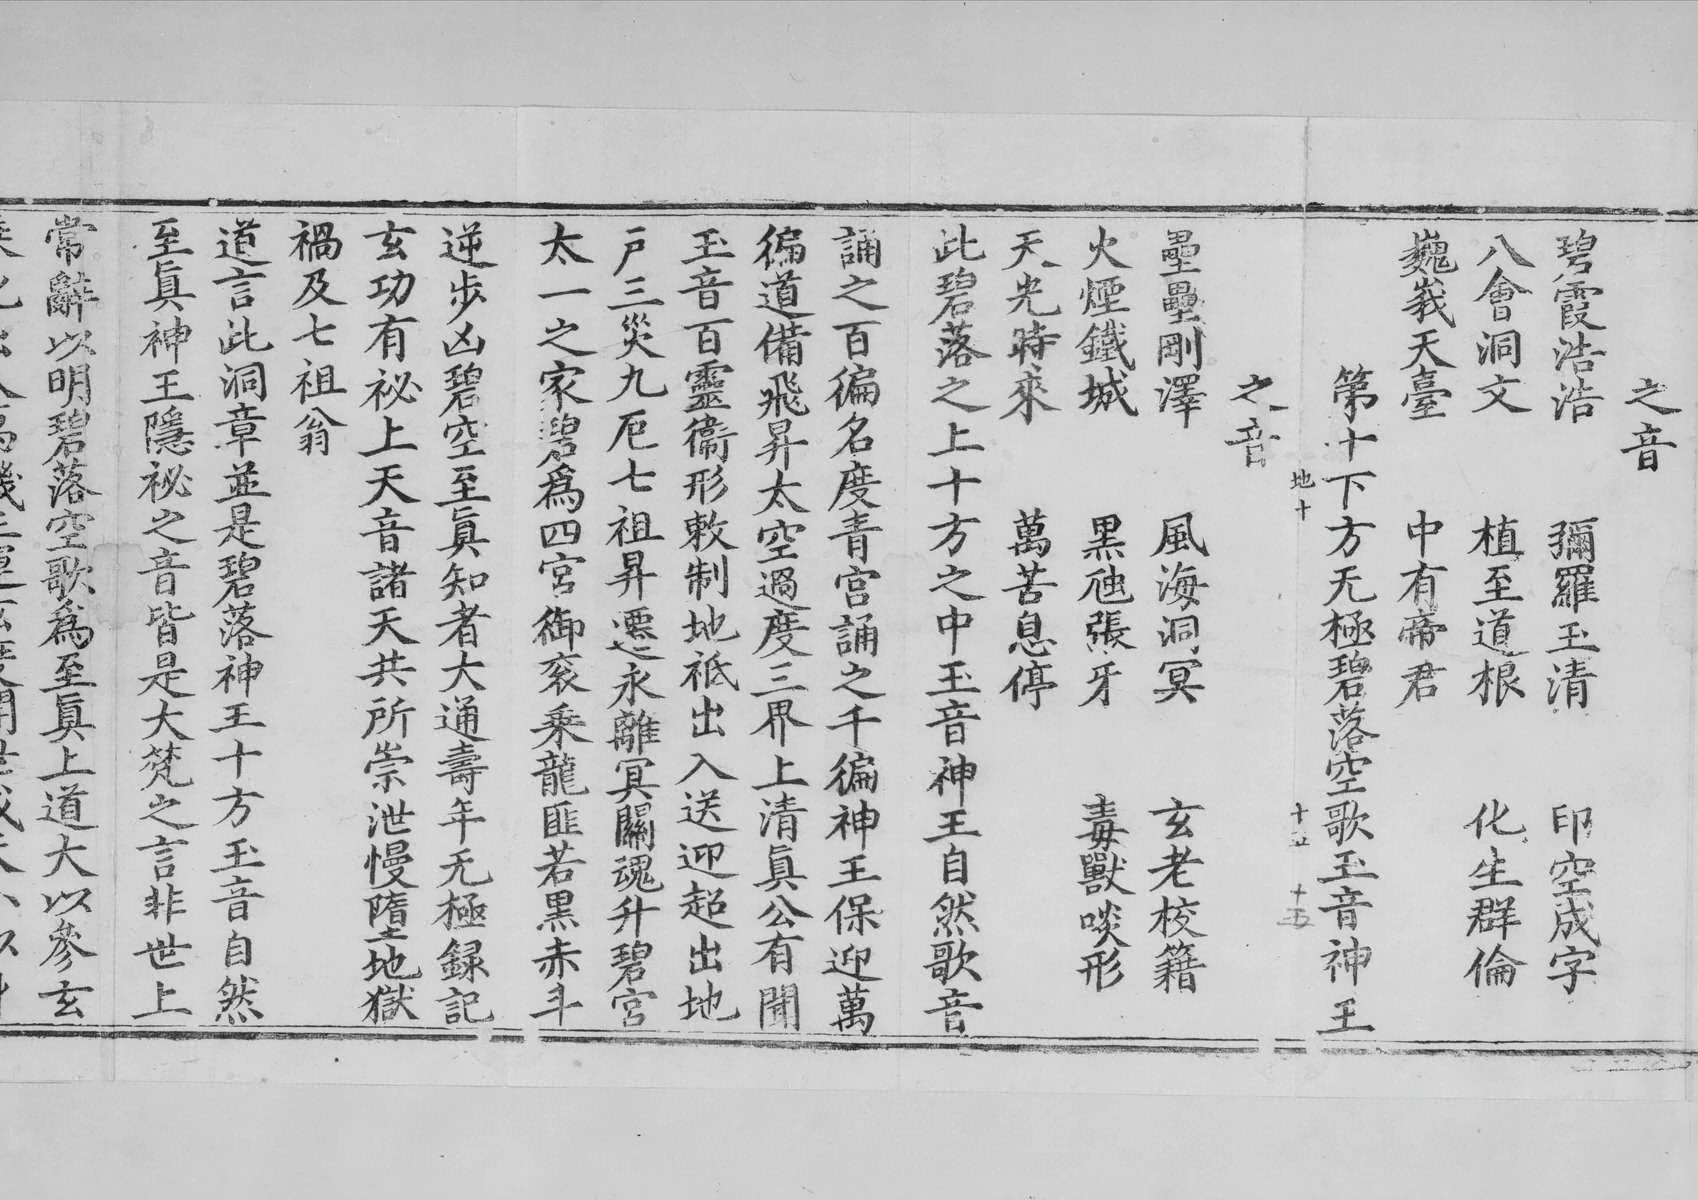 之音
碧霞浩浩　彌羅玉清　印空成字
八會洞文　植至道根　化生群倫
巍峩天臺　中有帝君
第十下方无極碧落空歌玉音神王
地十　十五　十五
之音
壘壘剛澤　風海洞冥　玄老校籍
火煙鐵城　黒虵張牙　毒獸啖形
天光時來　萬苦息停
此碧落之上十方之中玉音神王自然歌音
誦之百徧名度青宮誦之千徧神王保迎萬
徧道備飛昇太空過度三界上清眞公有聞
玉音百靈衞形敕制地祇出入送迎超出地
戶三災九厄七祖昇遷永離冥關魂升碧宮
太一之家碧爲四宮御衮乘龍匪若黒赤斗
逆步凶碧空至眞知者大通壽年无極録記
玄功有祕上天音諸天共所崇泄慢墮地獄
禍及七祖翁
道言此洞章並是碧落神王十方玉音自然
至眞神王隱祕之音皆是大梵之言非世上
常辭以明碧落空歌爲至眞上道大以參玄